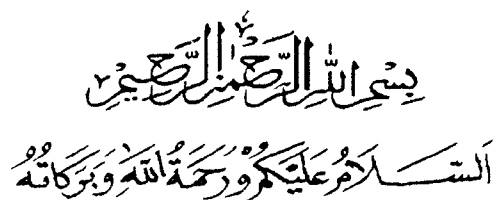 بِسْمِ اللهِ الرَّحْمٰنِ الرَّحِيْمِ
اَلسَّلَامُ عَلَيْكُمْ وَرَحْمَةُ اللهِ وَبَرَكَاتُهُ